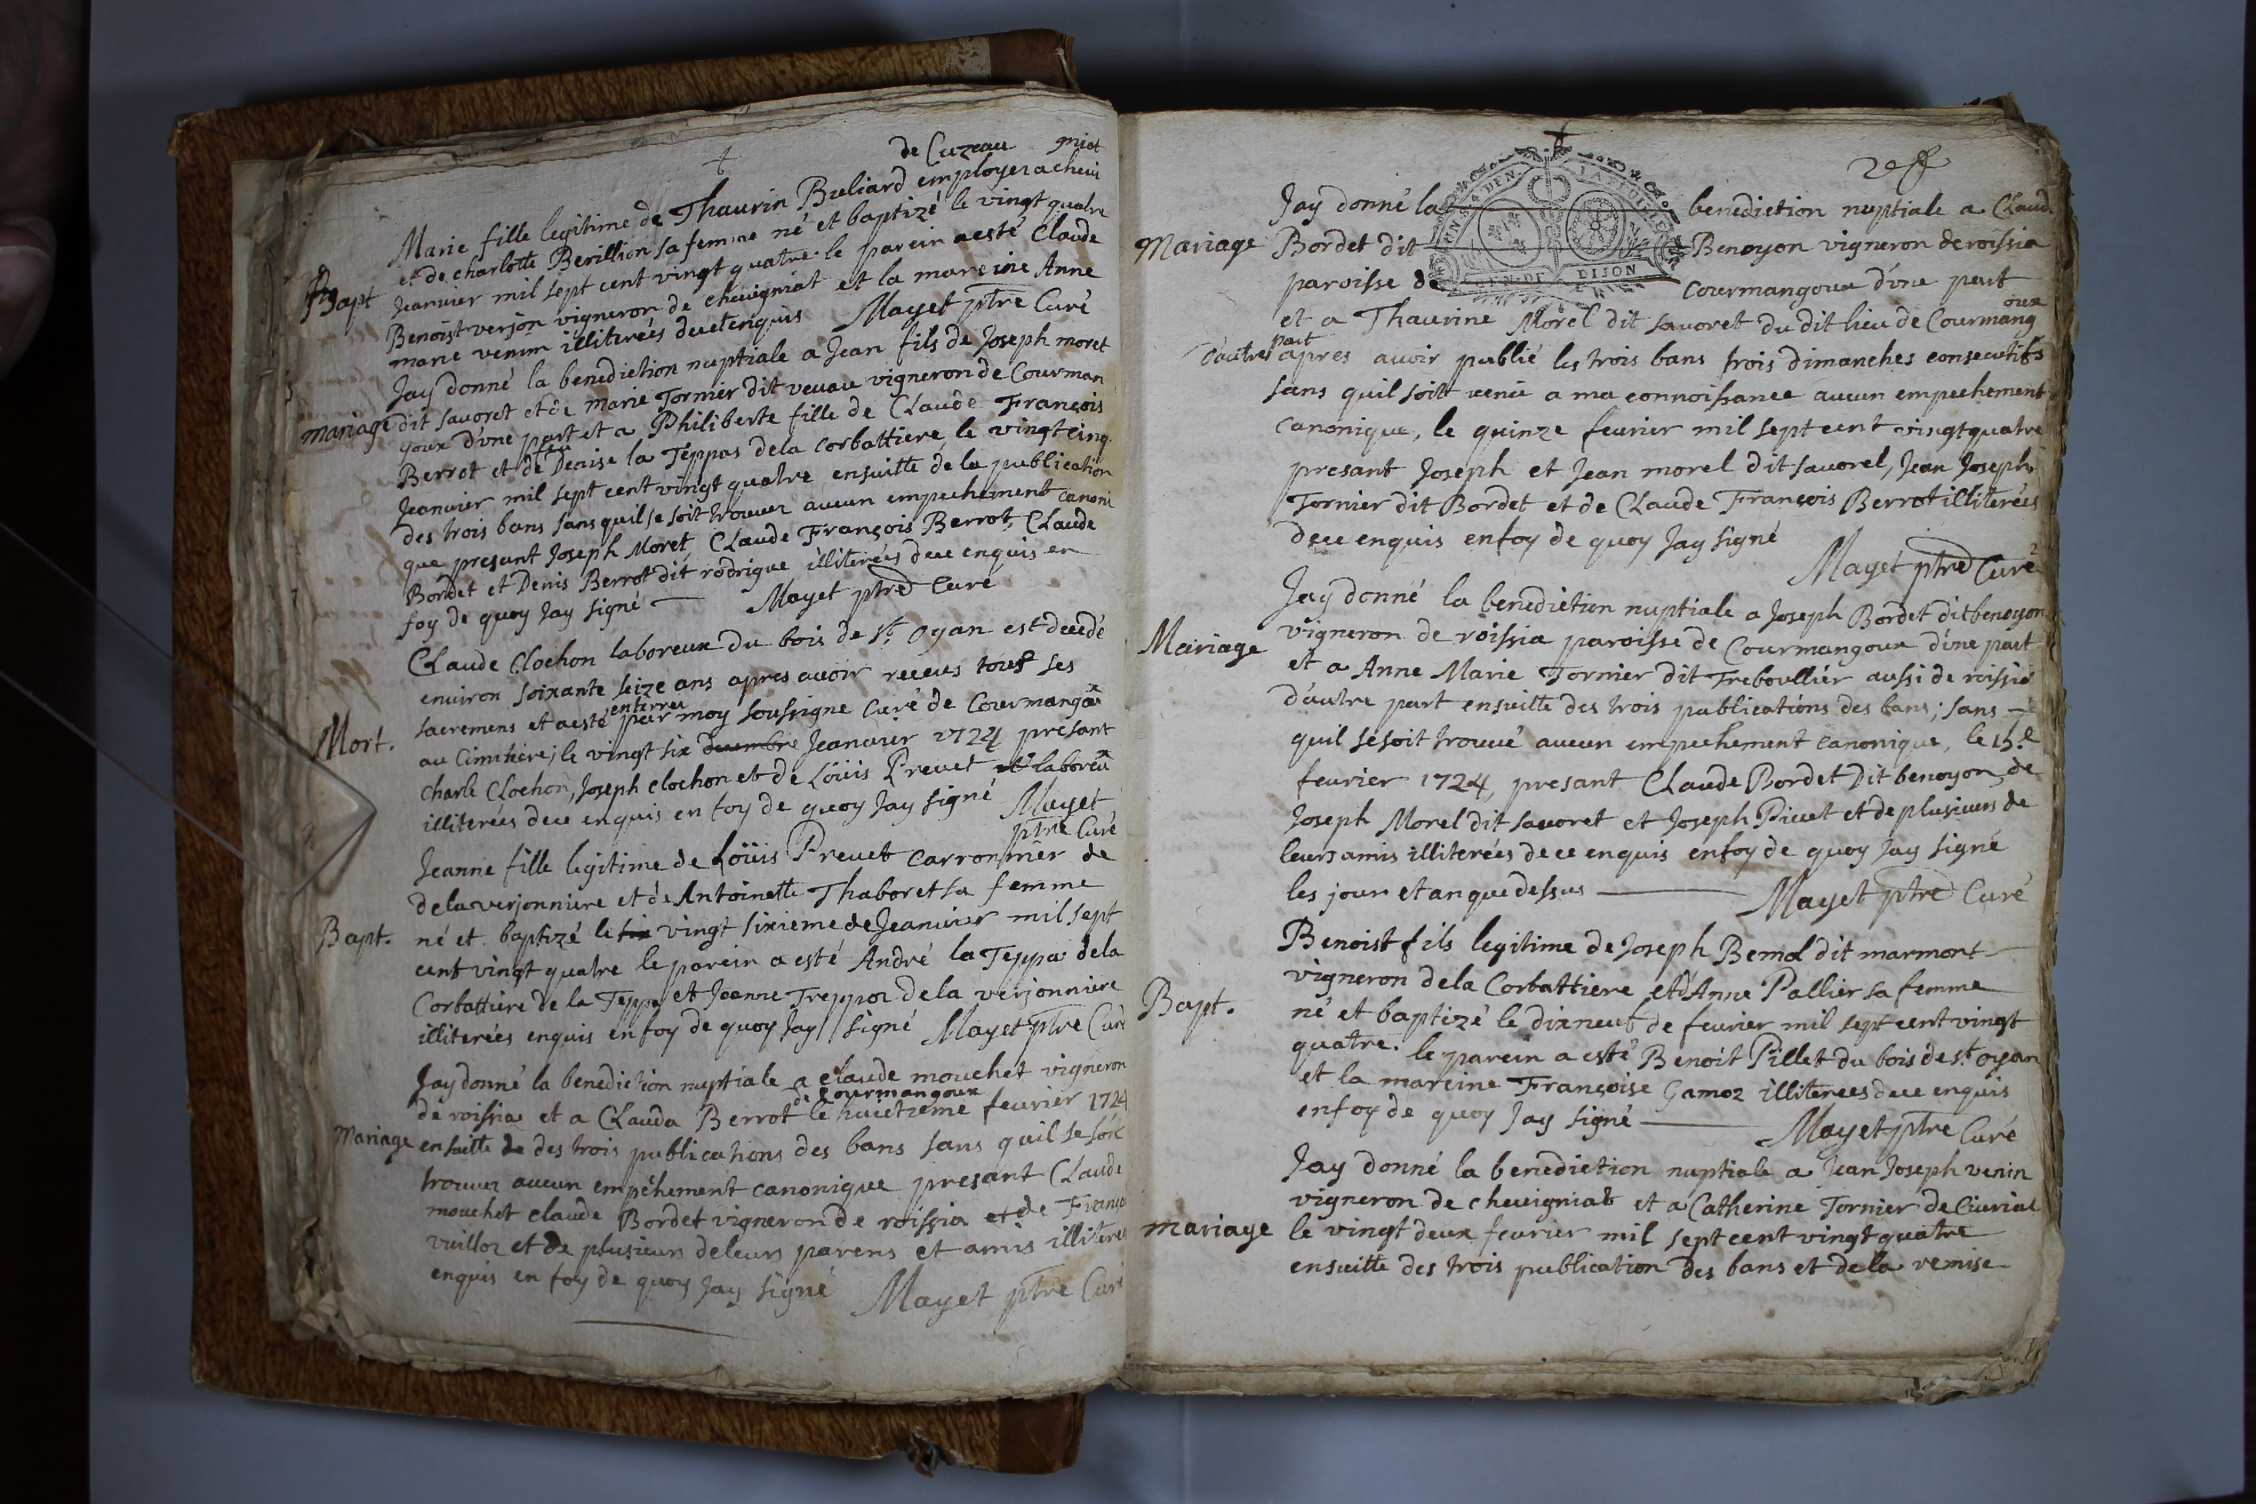 de Cuzeau
Marie fille legitime de Thaurin Buliard employer a chevi
gniat
et de charlotte Berillion sa femme né et baptizé le vingt quatre
Bapt
Jeanvier mil sept cent vingt quatre. le parein a esté Claude
Benoist verjon vigneron de chevigniat et la mareine Anne
marie venin illiterées deue enquis Mayet ptre Curé
Jay donné la benediction nuptiale a Jean fils de Joseph moret
mariage dit savoret et de marie Tornier dit veuau vigneron de Courman
goux d'vne part et a Philiberte fille de Claude François
Berrot et de feu Denise la Teppas dela corbattiere, le vingt cinq
Jeanvier mil sept cent vingt quatre ensuitte de la publication
des trois bans sans quil se soit trouver aucun empechement canoni
que presant Joseph Moret, Claude François Berrot, Claude
Bordet et Denis Berrot dit rodrigue illiterées deue enquis en
foy de quoy Jay signé Mayet ptre Curé
Claude Clochon laboreux du bois de St. Oyan est decedé
environ soixante seize ans apres avoir receus tous ses
sacremens et a esté enterrer par moy soussigne Curé de Courmangoux
Mort.
au Cimitiere; le vingt six Jeanvier 1724 presant
charle Clochon, Joseph clochon et de Loüis Prevet laboreux
illiterées deue enquis en foy de quoy Jay signé Mayet
ptre Curé
Jeanne fille legitime de Loüis Prevet carronnier de
dela verjonniere et de Antoinette Thaboret sa femme
Bapt. né et baptizé le vingt sixieme de Jeanvier mil sept
cent vingt quatre le parein a esté André la Teppa dela
Corbattiere de la Teppe et Jeanne Treppoz dela verjonniere
illiterées enquis en foy de quoy Jay signé Mayet ptre Curé
Jay donné la benediction nuptiale a claude mouchet vigneron
de Courmangoux
de roissia et a Clauda Berrot le huictieme fevrier 1724
Mariage ensuitte de des trois publications des bans sans quil se soit
trouver aucun empéhement canonique presant Claude
mouchet claude Bordet vigneron de roissia et de Franço
vuilloz et de plusieurs de leurs parens et amis illiteré
enquis en foy de quoy Jay signé Mayet ptre Curé
Jay donné la benediction nuptiale a Claude
Mariage Bordet dit Benoyon vigneron de roissia
paroisse de Courmangoux d'vne part
DIJON
et a Thaurine Morel dit savoret du dit lieu de Courmang
oux
d'autres part apres avoir publié les trois bans trois dimanches consecutifs
sans quil soit venü a ma connoissance aucun empechement
canonique, le quinze fevrier mil sept cent vingt quatre
presant Joseph et Jean morel dit savorel, Jean Joseph
Tornier dit Bordet et de Claude François Berrot illiterées
deue enquis en foy de quoy Jay signé
Mayet ptre Curé
Jay donné la benediction nuptiale a Joseph Bordet dit benoyon
Mariage
vigneron de roissia paroisse de Courmangoux d'vne part
et a Anne Marie Tornier dit Treboullier aussi de roissia
d'autre part ensuitte des trois publications des bans; sans
quil se soit trouué aucun empechement canonique, le 15.e
fevrier 1724, presant Claude Bordet dit benoyon, de
Joseph Morel dit savoret et Joseph Pivet et de plusieurs de
leurs amis illiterées de ce enquis en foy de quoy Jay signé
les jour et an que dessus Mayet ptre Curé
Benoist fils legitime de Joseph Bernol dit marmont
vigneron dela Corbattiere et d'Anne Pallier sa femme
Bapt.
né et baptizé le dixneuf de fevrier mil sept cent vingt
quatre. le parein a esté Benoit Pillet du bois de St oyan
et la mareine Françoise Gamoz illiterees deue enquis
en foy de quoy Jay signé Mayet ptre Curé
Jay donné la benediction nuptiale a Jean Joseph venin
vigneron de chevigniat et a Catherine Tornier de Civriat
mariage le vingt deux fevrier mil sept cent vingt quatre
ensuitte des trois publication des bans et dela remise